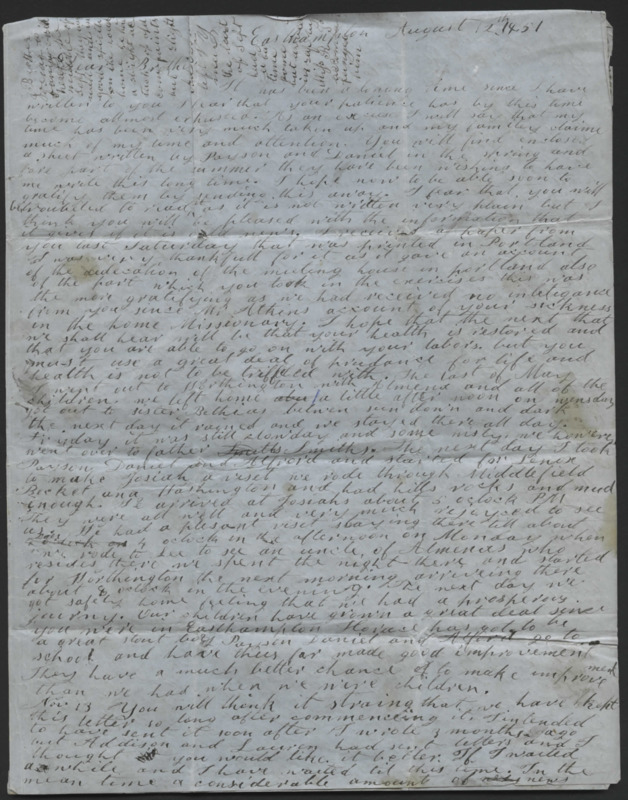 Easthampton August 12th 1851
Dear Brother
It has been a long time since I have
written to you I fear that your patience has by this time
become allmost exhausted. As an excuse I will say that my
time has been very much taken up and my family claims
much of my time and attention. You will find inclosed
a sheet written by Payson and Daniel in the spring and
fore part of the summer they have been wishing to have
me write this long time I hope now to be able soon to
gratify them by sending them away. I fear that you will
be troubled to read as it is not written very plain but I
think you will be pleased with the information that
I received a paper from
you last Saturday that was printed in Portland
I was very thankfull for it as it gave an account
of the dedication of the meeting house in portland also
of the part which you took in the exercises this was
the more gratifying as we had received no inteligance
from you since Mr Atkins account of your sickness
in the home Missionary. I hope that the next that
we shall hear will be that your health is restored and
that you are able to go on with your labors. but you
must use a great deal of prudance for life and
health is not to be trifeled with. The last of May
I went out to Worthington with Almena and all of the
children. we left home a little after noon on
got out to sister Bethias betwen sun down and dark
the next day it rained and we stayed there all day.
Friday it was still clouday and some misty we however
went over to father Smiths. The next day I took
Payson Daniel and Alford and started for Lenox
to make Josiah a visit we rode through Middlefield
Becket and Washington and had hills rocks and mud
enough. We arrived at Josiahs about 5 oclock PM
They were all well and very much rejoyced to see
us. We had a plesant visit staying there till about
4 oclock in the afternoon on Monday when
we rode to Lee to see an uncle of Almenas who
resides there we spent the night there and started
for Worthington the next morning arriveing there
about 8 oclock in the evening. The next day we
got safely home feeling that we had a prosperous
journy. Our children have grown a great deal since
you were in Easthampton Horace has got to be
a great stout boy Payson Daniel and Alford go to
school and have thus far made good improvement
They have a much better chance to make improvement
than we had when we were children.
Nov. 13 You will think it strainge that we have kept
this letter so long after commencing it. I intended
to have sent it soon after I wrote 3 months ago
but Addison and Lauren had sent letters and I
thought you would like it better if I waited
a while and I have waited til this time. In the
mean time a considerable amount of news